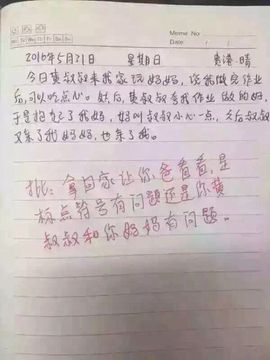 Memo No.
Date
2016年5月21日 星期日 黄港·晴
今日黄叔叔来我家玩妈妈,说我做完作业
后,可以吃点心。然后,黄叔叔夸我作业做的好,
于是妈妈了我妈妈,妈叫叔叔小心一点,之后叔叔
又亲了我妈妈,也亲了我。
批:拿回家让你爸看看,是
标点符号有问题还是你黄
叔叔和你妈妈有问题。